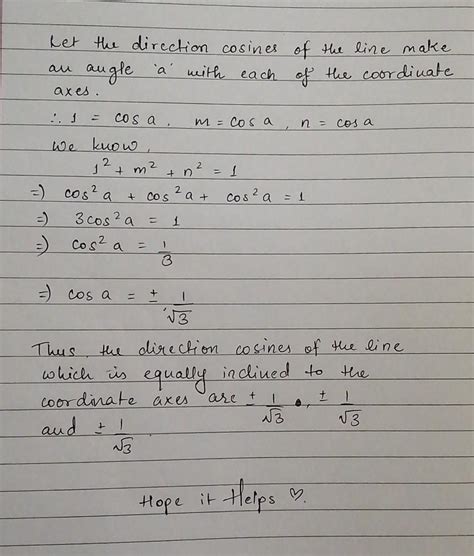 Let the direction cosines of the line make
an angle 'a' with each of the coordinate
axes.
∴ l = cos a, m = cos a, n = cos a
We know,
l² + m² + n² = 1
=) cos² a + cos² a + cos² a = 1
=) 3cos² a = 1
=) cos² a = 1/3
=) cos a = ± 1/√3
Thus, the direction cosines of the line
which is equally inclined to the
coordinate axes are ± 1/√3, ± 1/√3
and ± 1/√3
Hope it Helps ♡.